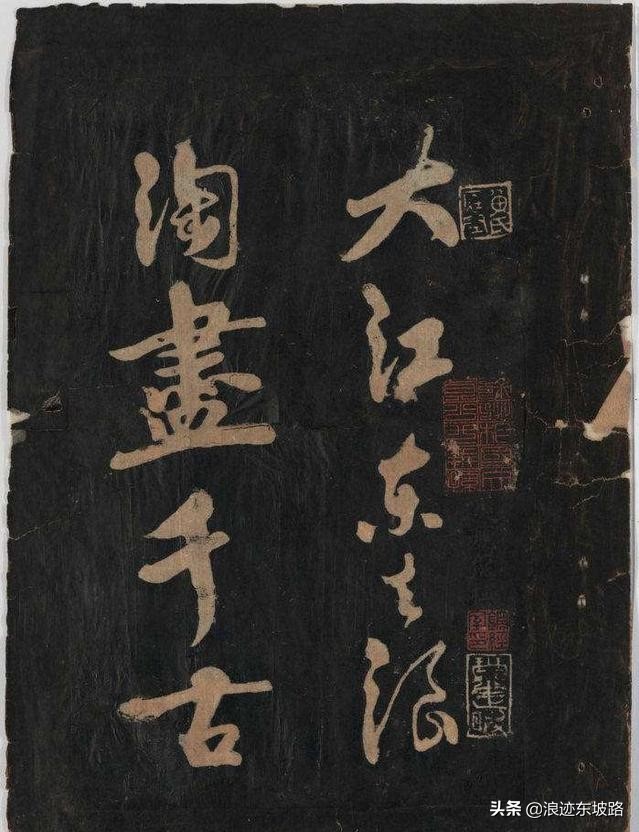 大江东去浪
淘盡千古
头条 @浪迹东坡路